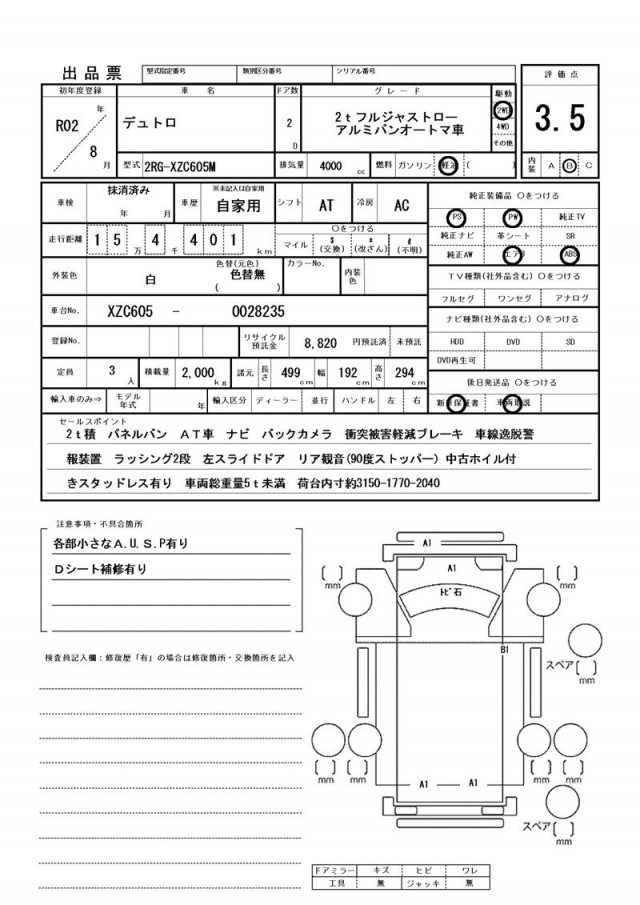 出品票 型式指定番号 類別区分番号 シリアル番号 評価点
初年度登録 車名 ドア数 グレード 駆動
R02 年 8 月 デュトロ 2 D 2tフルジャストロー
アルミバンオートマ車 2WD 4WD その他 3.5
型式 2RG-XZC605M 排気量 4000 cc 燃料 ガソリン 軽油 ( ) 内装 A B C
車検 抹消済み 年 月 車歴 ※未記入は自家用 自家用 シフト AT 冷房 AC 純正装備品 ○をつける
走行距離 1 5 万 4 千 4 0 1 km ○をつける マイル $(交換) *(改ざん) #(不明) PS PW 純正TV
純正ナビ 革シート SR
外装色 白 色替(元色) 色替無 ( ) カラーNo. 内装色 純正AW エアB ABS
TV種類(社外品含む) ○をつける
フルセグ ワンセグ アナログ
車台No. XZC605 - 0028235 ナビ種類(社外品含む) ○をつける
登録No. リサイクル預託金 8,820 円預託済 未預託 HDD DVD SD
DVD再生可
定員 3 人 積載量 2,000 kg 諸元 長さ 499 cm 幅 192 cm 高さ 294 cm 後日発送品 ○をつける
輸入車のみ⇒ モデル年式 年 輸入区分 ディーラー 並行 ハンドル 左 右 新車保証書 車両取説
セールスポイント
2t積 パネルバン AT車 ナビ バックカメラ 衝突被害軽減ブレーキ 車線逸脱警
報装置 ラッシング2段 左スライドドア リア観音(90度ストッパー) 中古ホイル付
きスタッドレス有り 車両総重量5t未満 荷台内寸約3150-1770-2040
注意事項・不具合箇所
各部小さなA.U.S.P有り
Dシート補修有り
検査員記入欄:修復歴「有」の場合は修復箇所・交換箇所を記入
A1
A1
トビ石
mm mm
B1
スペア mm
mm mm mm mm
A1 A1
スペア mm
ドアミラー キズ ヒビ ワレ
工具 無 ジャッキ 無